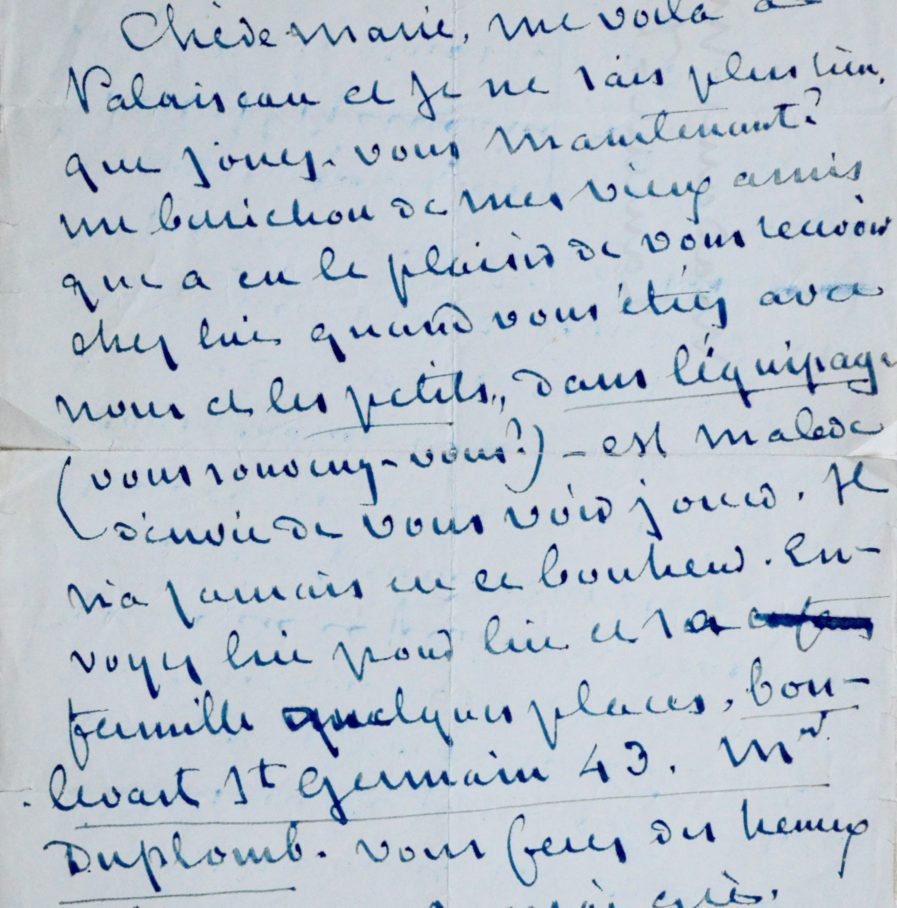 Chère Marie, me voilà à
Palaiseau et je ne sais plus rien,
que jouez-vous maintenant?
un berrichon de mes vieux amis
que a eu le plaisir de vous recevoir
chez lui quand vous étiez avec
nous et les petits,, dans l'équipage
(vous souvenez-vous?) – est malade
d'envie de vous voir jouer. Il
n'a jamais eu ce bonheur. En-
voyez lui pour lui et sa enfans
famille quelques places, bou-
levart St Germain 43. Mr
Duplomb. vous ferez des heureux